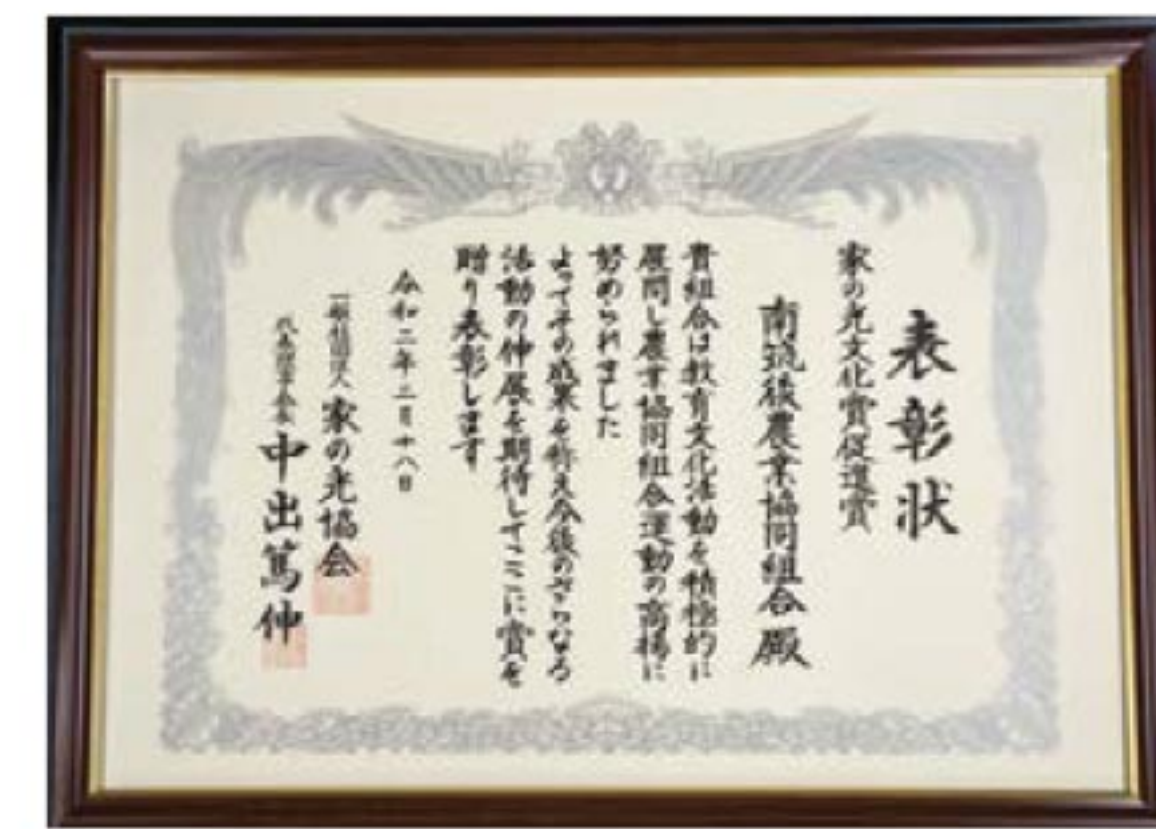 表彰状
家の光文化賞促進賞
南筑後農業協同組合殿
貴組合は教育文化活動を積極的に
展開し農業協同組合運動の高揚に
努められました
よってその成果を称え今後のさらなる
活動の伸展を期待してここに賞を
贈り表彰します
令和二年二月十八日
一般社団法人 家の光協会
代表理事会長 中出篤伸